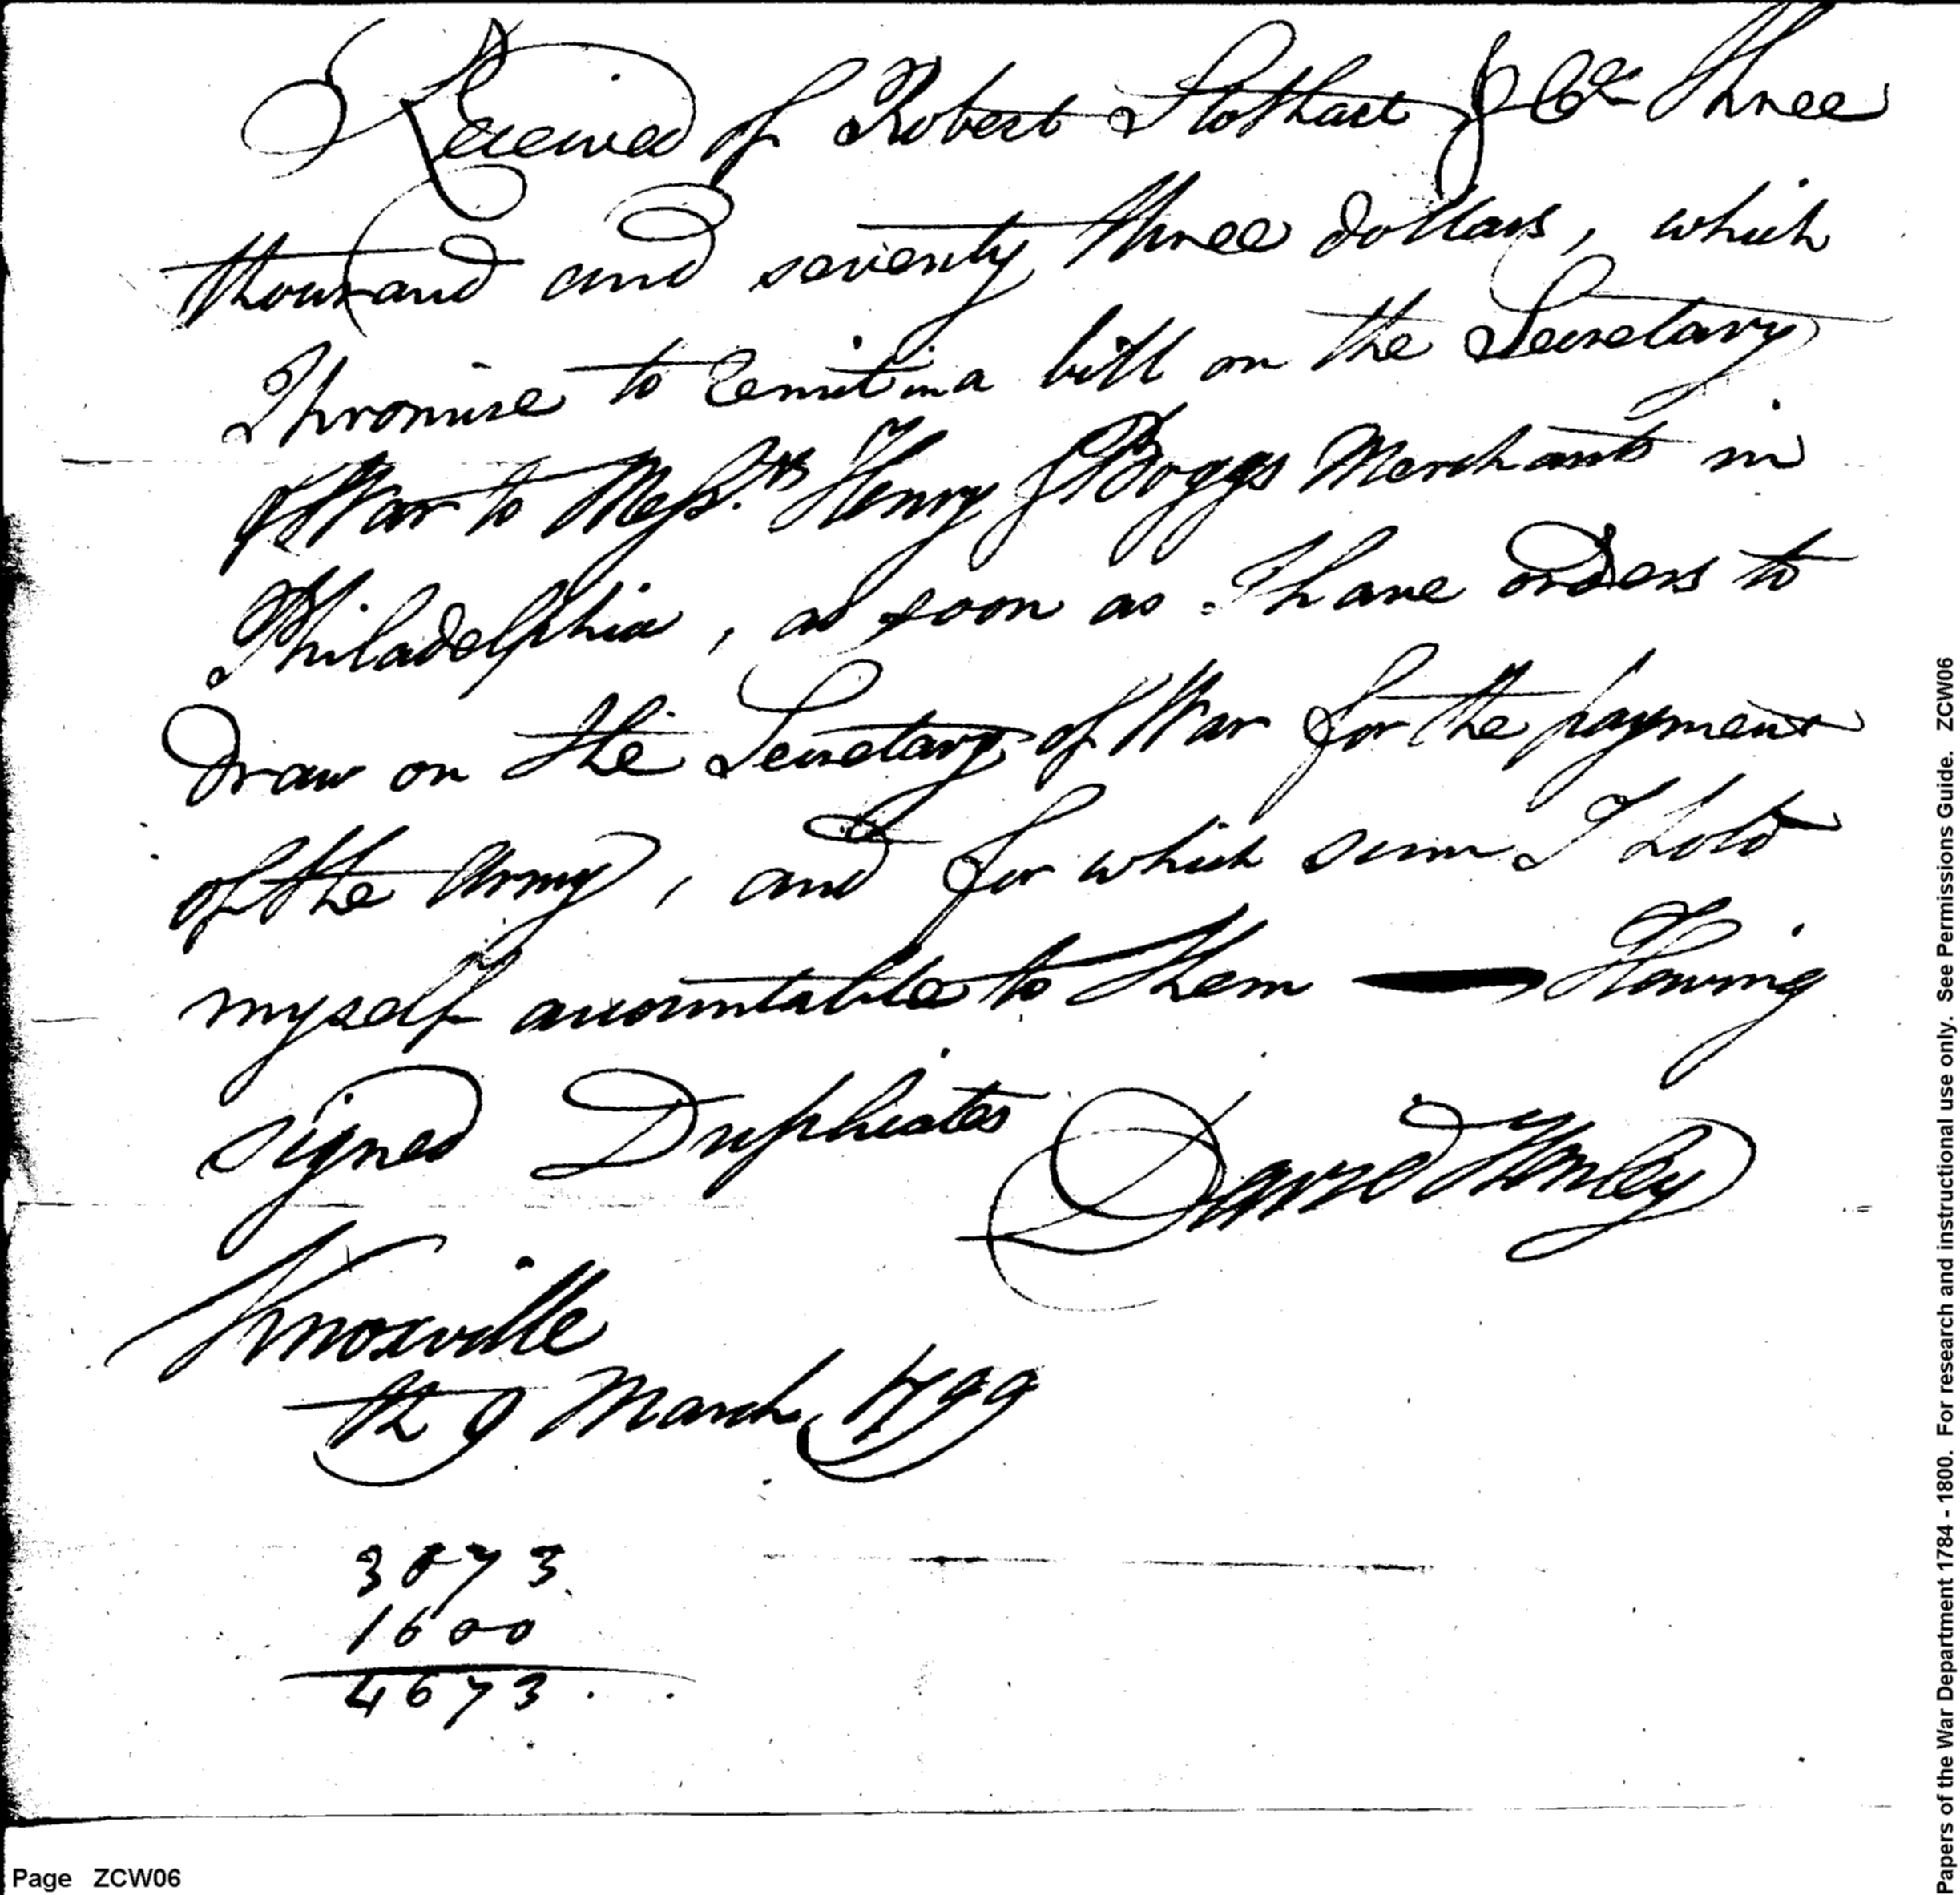 Received of Robert Stothart & Co. Three
thousand and seventy three dollars, which
I promise to remit in a bill on the Secretary
of War to Messrs Henry & Boggs Merchants in
Philadelphia, as soon as I have orders to
Draw on the Secretary of War for the payment
of the Army, and for which sum I hold
myself accountable to them — Having
signed Duplicates David Henley
Knoxville
the 9 March 1799
3073
1600
4673.
Page ZCW06
Papers of the War Department 1784 - 1800. For research and instructional use only. See Permissions Guide. ZCW06